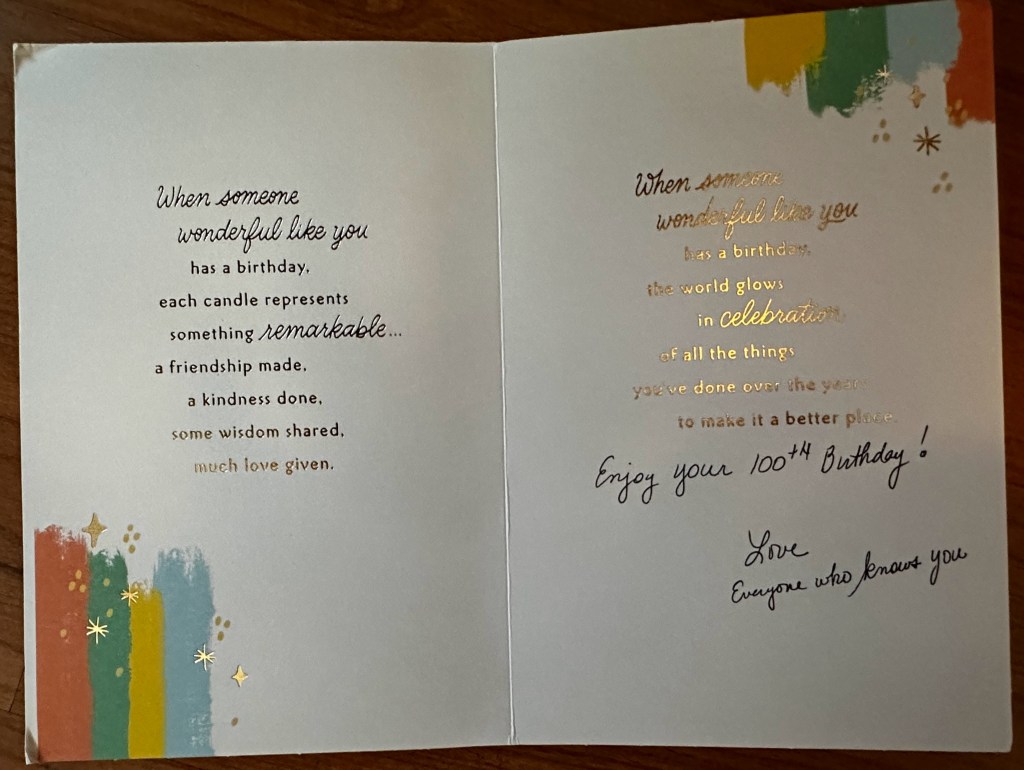 When someone
wonderful like you
has a birthday,
each candle represents
something remarkable...
a friendship made,
a kindness done,
some wisdom shared,
much love given.
When someone
wonderful like you
has a birthday,
the world glows
in celebration
of all the things
you've done over the years
to make it a better place.
Enjoy your 100th Birthday!
Love
Everyone who knows you